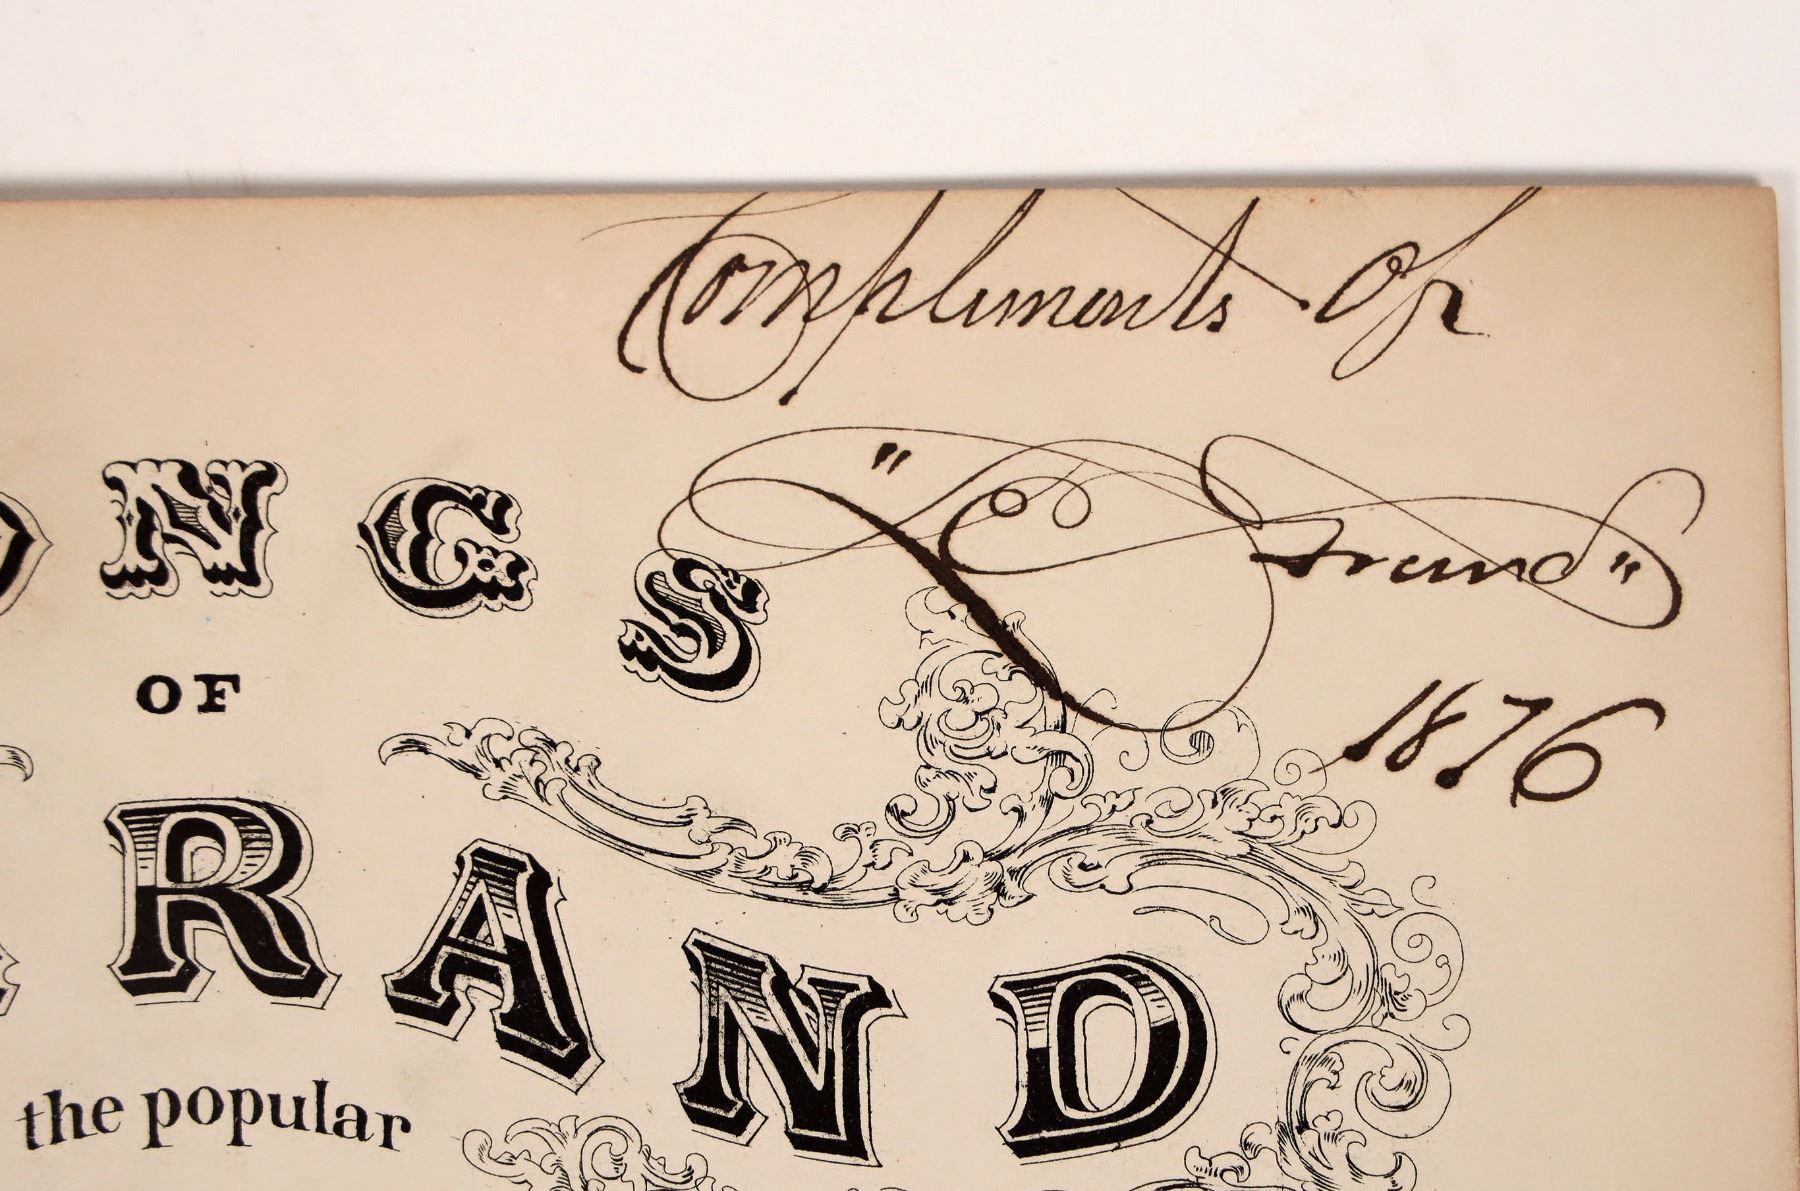 Compliments of
"A Friend"
1876
ONGS
OF
RAND
the popular